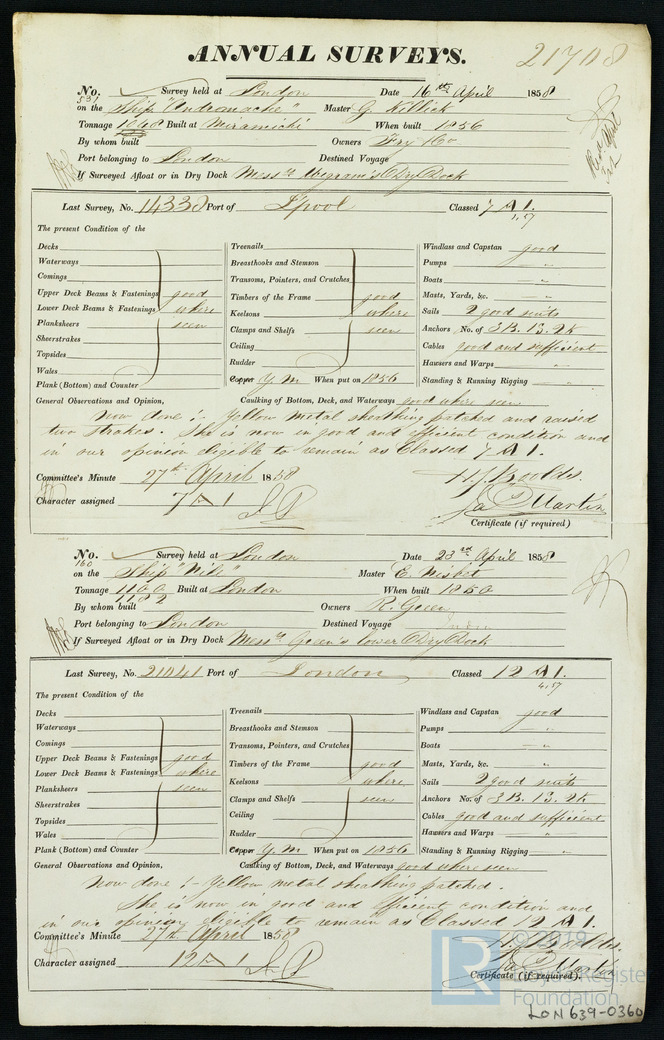 ANNUAL SURVEYS. 21708
No. 531 Survey held at London Date 16th April 1858
on the Ship "Andromache" Master G Killick
Tonnage 1048 Built at Miramichi When built 1856
By whom built Owners Fry & Co
Port belonging to London Destined Voyage
If Surveyed Afloat or in Dry Dock Messrs Wigram's Dry Dock
Last Survey, No. 14338 Port of Lpool Classed 7 A 1.
1,57
The present Condition of the
Decks Treenails Windlass and Capstan good
Waterways Breasthooks and Stemson Pumps "
Comings Transoms, Pointers, and Crutches Boats "
Upper Deck Beams & Fastenings good Timbers of the Frame good Masts, Yards, &c. "
Lower Deck Beams & Fastenings where Keelsons where Sails 2 good suits
Planksheers seen Clamps and Shelfs seen Anchors No. of 3B. 1S. 2K
Sheerstrakes Ceiling Cables good and sufficient
Topsides Rudder Hawsers and Warps "
Wales Copper Y.M. When put on 1856 Standing & Running Rigging "
Plank (Bottom) and Counter
General Observations and Opinion, Caulking of Bottom, Deck, and Waterways good where seen
Now done :- Yellow metal sheathing patched and raised
two strakes. She is now in good and efficient condition and
in our opinion eligible to remain as Classed 7 A 1.
Committee's Minute 27th April 1858
Character assigned 7 A 1
Jas Martin
Certificate (if required)
No. 160 Survey held at London Date 23rd April 1858
on the Ship "Nile" Master E. Nisbet
Tonnage 1100 Built at London When built 1850
1182
By whom built Owners R. Green
Port belonging to London Destined Voyage
If Surveyed Afloat or in Dry Dock Messrs Green's lower Dry Dock
Last Survey, No. 21041 Port of London Classed 12 A 1.
4,57
The present Condition of the
Decks Treenails Windlass and Capstan good
Waterways Breasthooks and Stemson Pumps "
Comings Transoms, Pointers, and Crutches Boats "
Upper Deck Beams & Fastenings good Timbers of the Frame good Masts, Yards, &c. "
Lower Deck Beams & Fastenings where Keelsons where Sails 2 good suits
Planksheers seen Clamps and Shelfs seen Anchors No. of 3B. 1S. 2K
Sheerstrakes Ceiling Cables good and sufficient
Topsides Rudder Hawsers and Warps "
Wales Copper Y.M. When put on 1856 Standing & Running Rigging "
Plank (Bottom) and Counter
General Observations and Opinion, Caulking of Bottom, Deck, and Waterways good where seen
Now done :- Yellow metal sheathing patched.
She is now in good and efficient condition and
in our opinion eligible to remain as Classed 12 A 1.
Committee's Minute 27th April 1858
Character assigned 12 A 1
Jas Martin
Certificate (if required).
LR © 2019
Lloyd's Register
Foundation
LON 639-0360